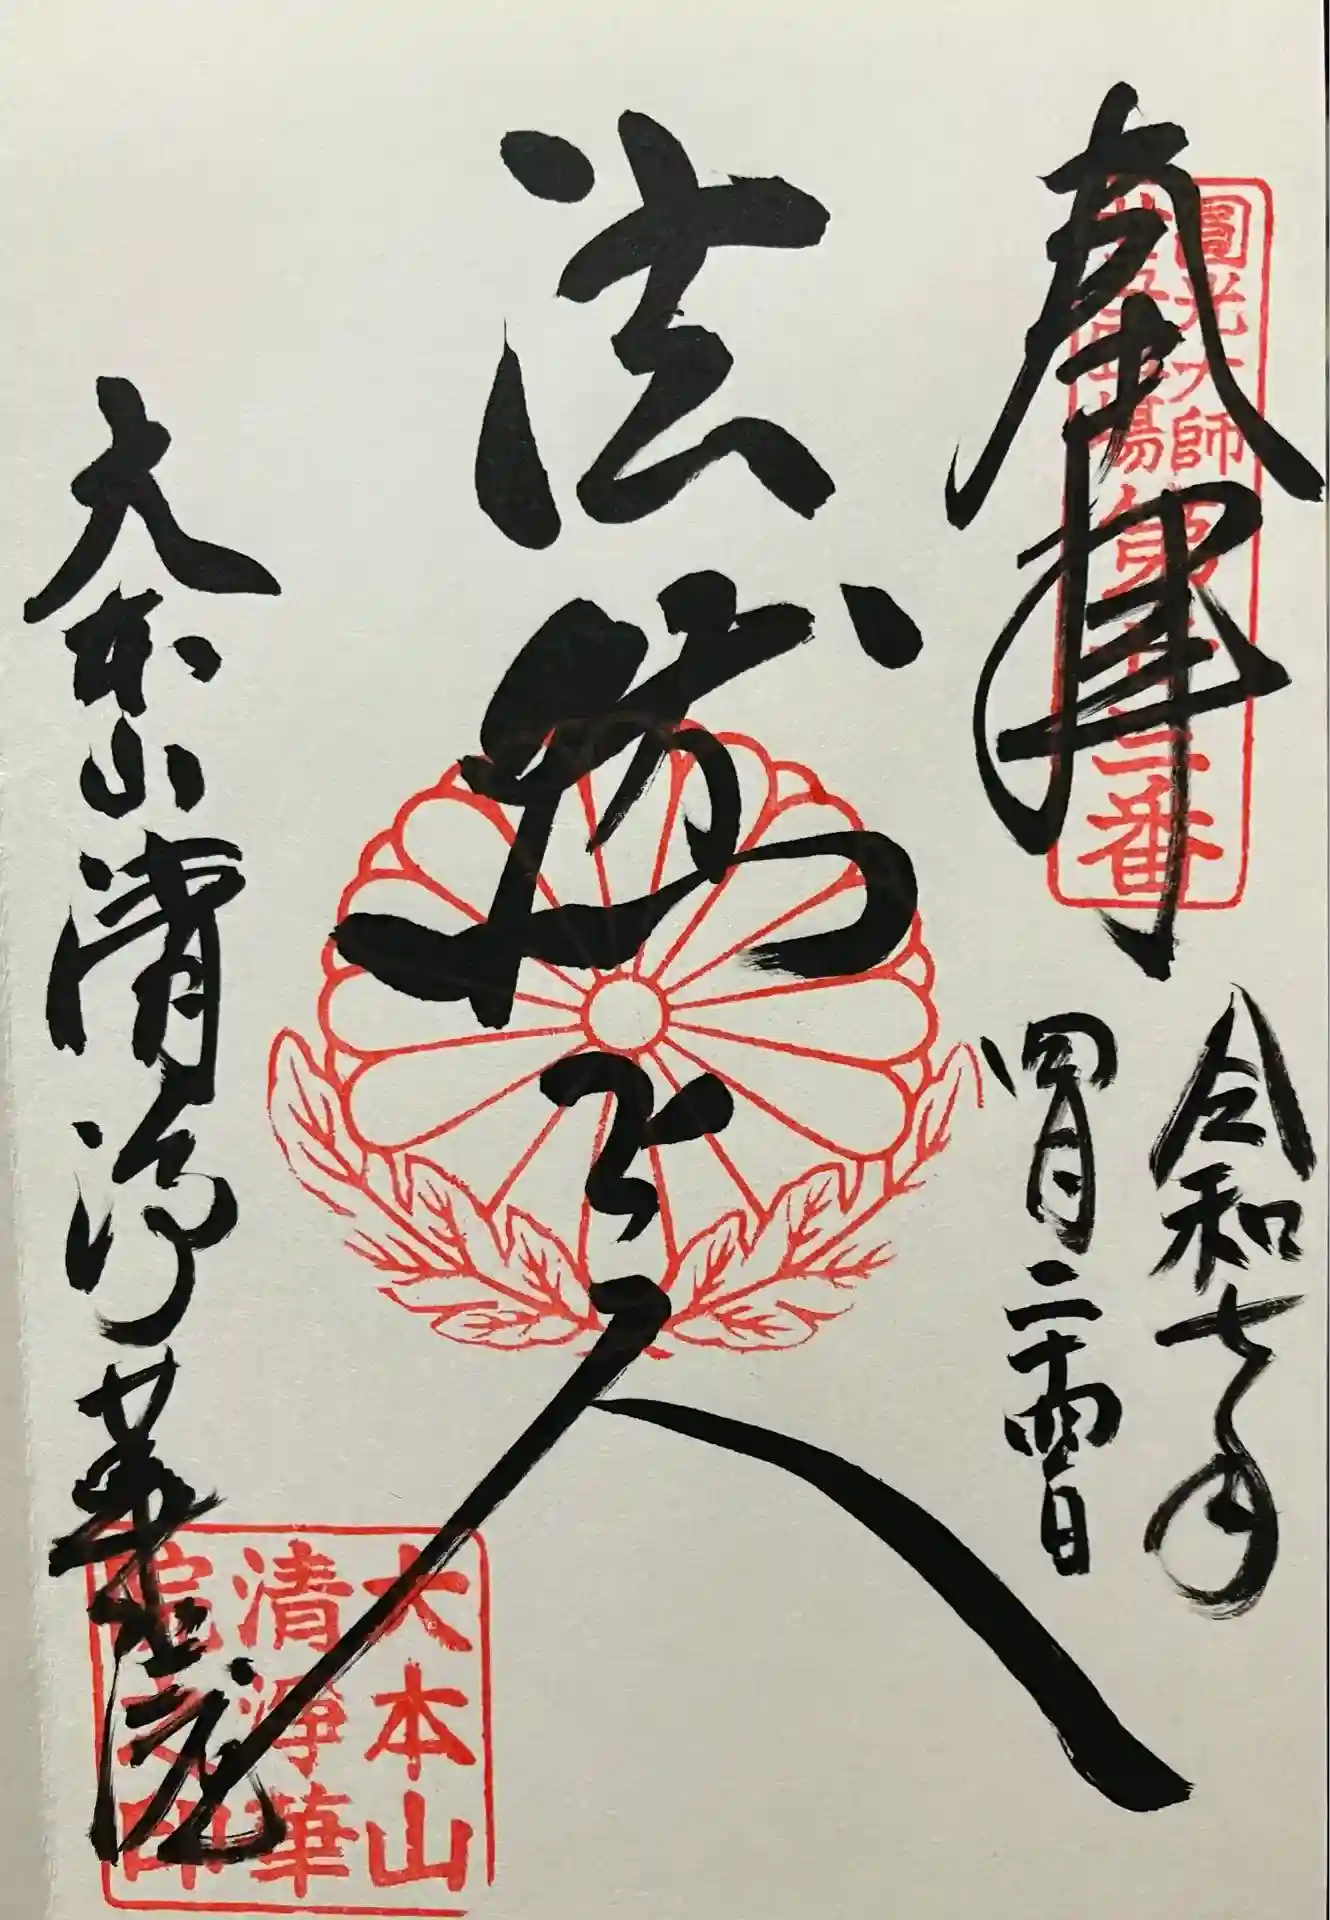 奉拝
圓光大師
廿五霊場第廿三番
令和七年
四月二十四日
法然上人
大本山清浄華院
大本山
清浄華
院之印